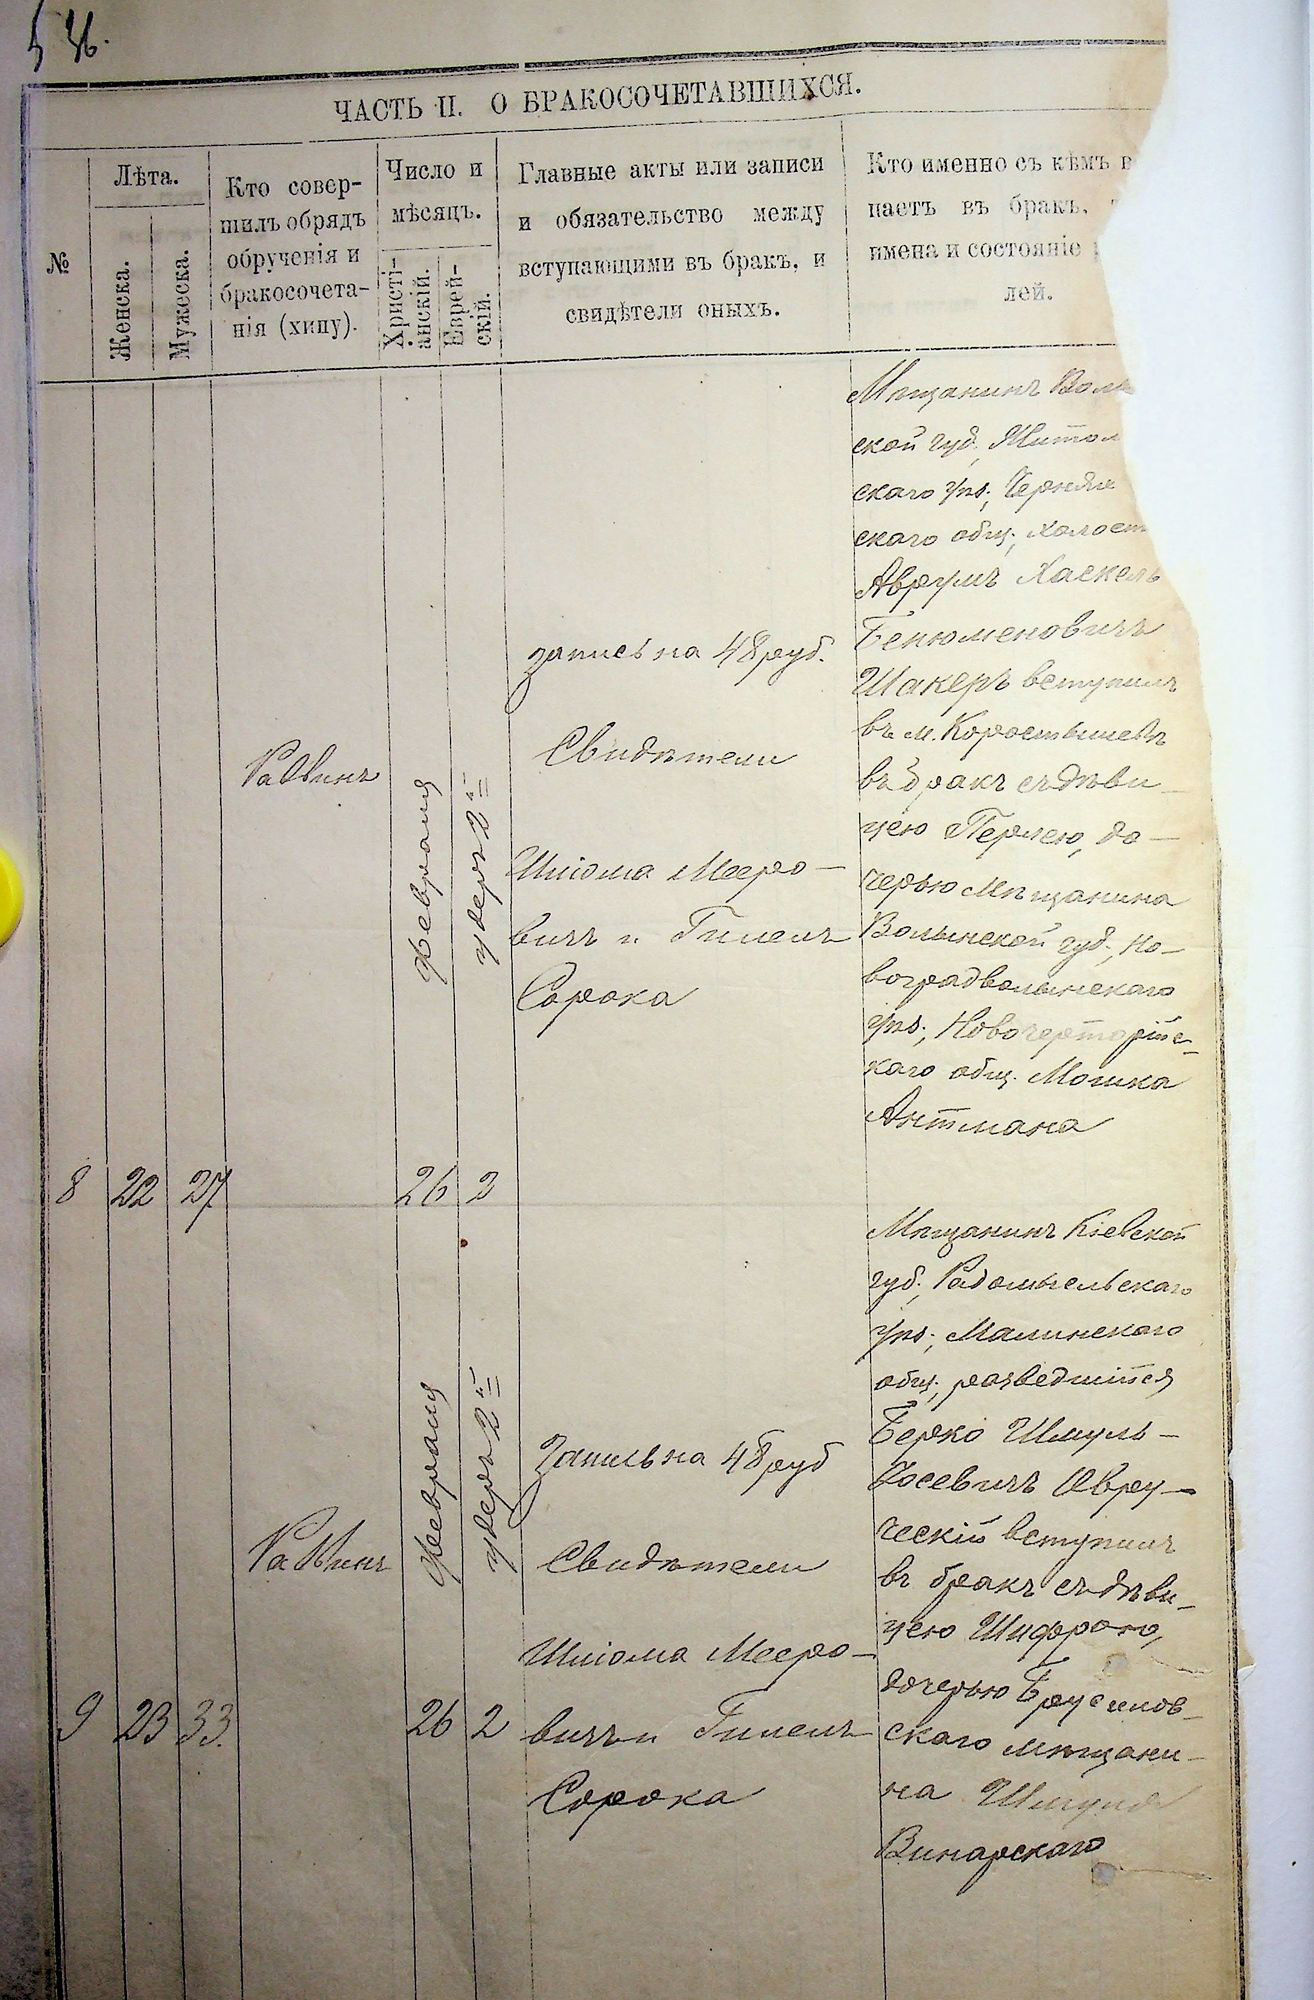 36.
ЧАСТЬ II. О БРАКОСОЧЕТАВШИХСЯ.
№
Лѣта.
Женска.
Мужеска.
Кто совер-
шилъ обрядъ
обрученія и
бракосочета-
нія (хипу).
Число и
мѣсяцъ.
Христі-
анскій.
Еврей-
скій.
Главные акты или записи
и обязательство между
вступающими въ бракъ, и
свидѣтели оныхъ.
Кто именно съ кѣмъ в
паетъ въ бракъ,
имена и состояніе
лей.
8
22
27
Раввинъ
Февраля
26
удеръ 2й
2
Запись на 48 руб.
Свидѣтели
Шліома Мееро-
вичъ и Гилель
Сорока
Мѣщанинъ Волы
ской губ., Житом
скаго уѣз., Черняхо
скаго общ., холост
Аврумъ Хаскель
Бенюменовичъ
Шакеръ вступилъ
въ м. Коростышевѣ
въ бракъ съ дѣви-
цею Перлею, до-
черью мѣщанина
Волынской губ., Но-
воградволынскаго
уѣз., Новочерторійс-
каго общ. Мошка
Антмана
9
23
33.
Раввинъ
Февраля
26
удеръ 2й
2
Запись на 48 руб
Свидѣтели
Шліома Мееро-
вичъ и Гилель
Сорока
Мѣщанинъ Кіевской
губ., Радомысльскаго
уѣз., Малинскаго
общ., разведшійся
Берко Шмуль-
Іосевичъ Овру-
ческій вступилъ
въ бракъ съ дѣви-
цею Шифрою,
дочерью Брусилов-
скаго мѣщани-
на Шмуля
Винарскаго